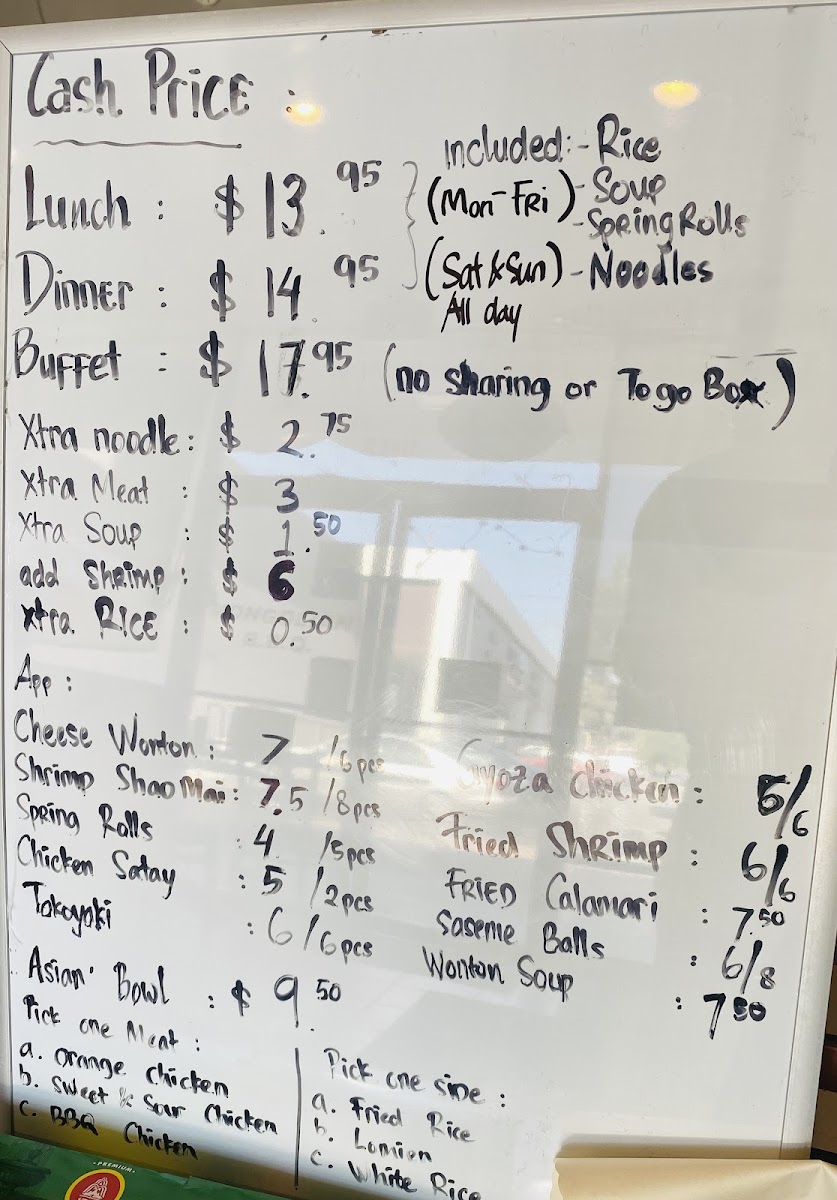 Cash Price :
Lunch : $ 13.95
Dinner : $ 14.95
included:- Rice
(Mon-Fri) - Soup
- Spring Rolls
(Sat & Sun) - Noodles
All day
Buffet : $ 17.95 (no sharing or To go Box)
Xtra noodle: $ 2.75
Xtra Meat : $ 3
Xtra Soup : $ 1.50
add Shrimp : $ 6
Xtra RICE : $ 0.50
App :
Cheese Wonton : 7 /6pcs
Shrimp Shao Mai : 7.5 /8pcs
Spring Rolls : 4 /5pcs
Chicken Satay : 5 /2pcs
Takoyaki : 6/6pcs
Gyoza Chicken : 5/6
Fried Shrimp : 6/6
FRIED Calamari : 7.50
Saseme Balls : 6/8
Wonton Soup : 7.50
Asian Bowl : $ 9.50
Pick one Meat :
a. orange Chicken
b. Sweet & Sour Chicken
c. BBQ Chicken
Pick one side :
a. Fried Rice
b. Lomien
c. White Rice
PREMIUM